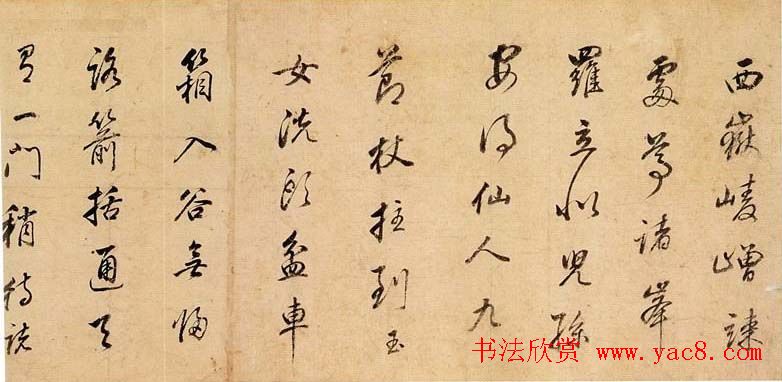 西嶽崚嶒竦
處尊諸峯
羅立似兒孫
安得仙人九
節杖拄到玉
女洗頭盆車
箱入谷無歸
路箭括通天
有一門稍待秋
书法欣赏 www.yac8.com